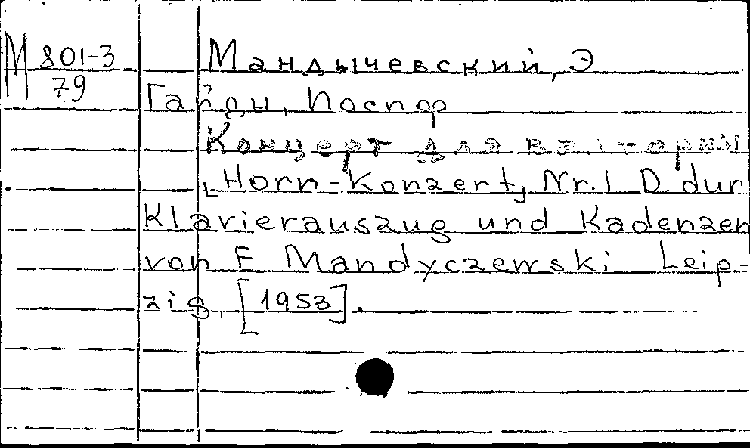 М 801-3 Мандычевский, Э
79
Гайдн, Иосиф
Концерт для валторны
[Horn-Konzert, Nr. 1 D dur
Klavierauszug und Kadenzen
von E Mandyczewski Leip-
zig, [1953].